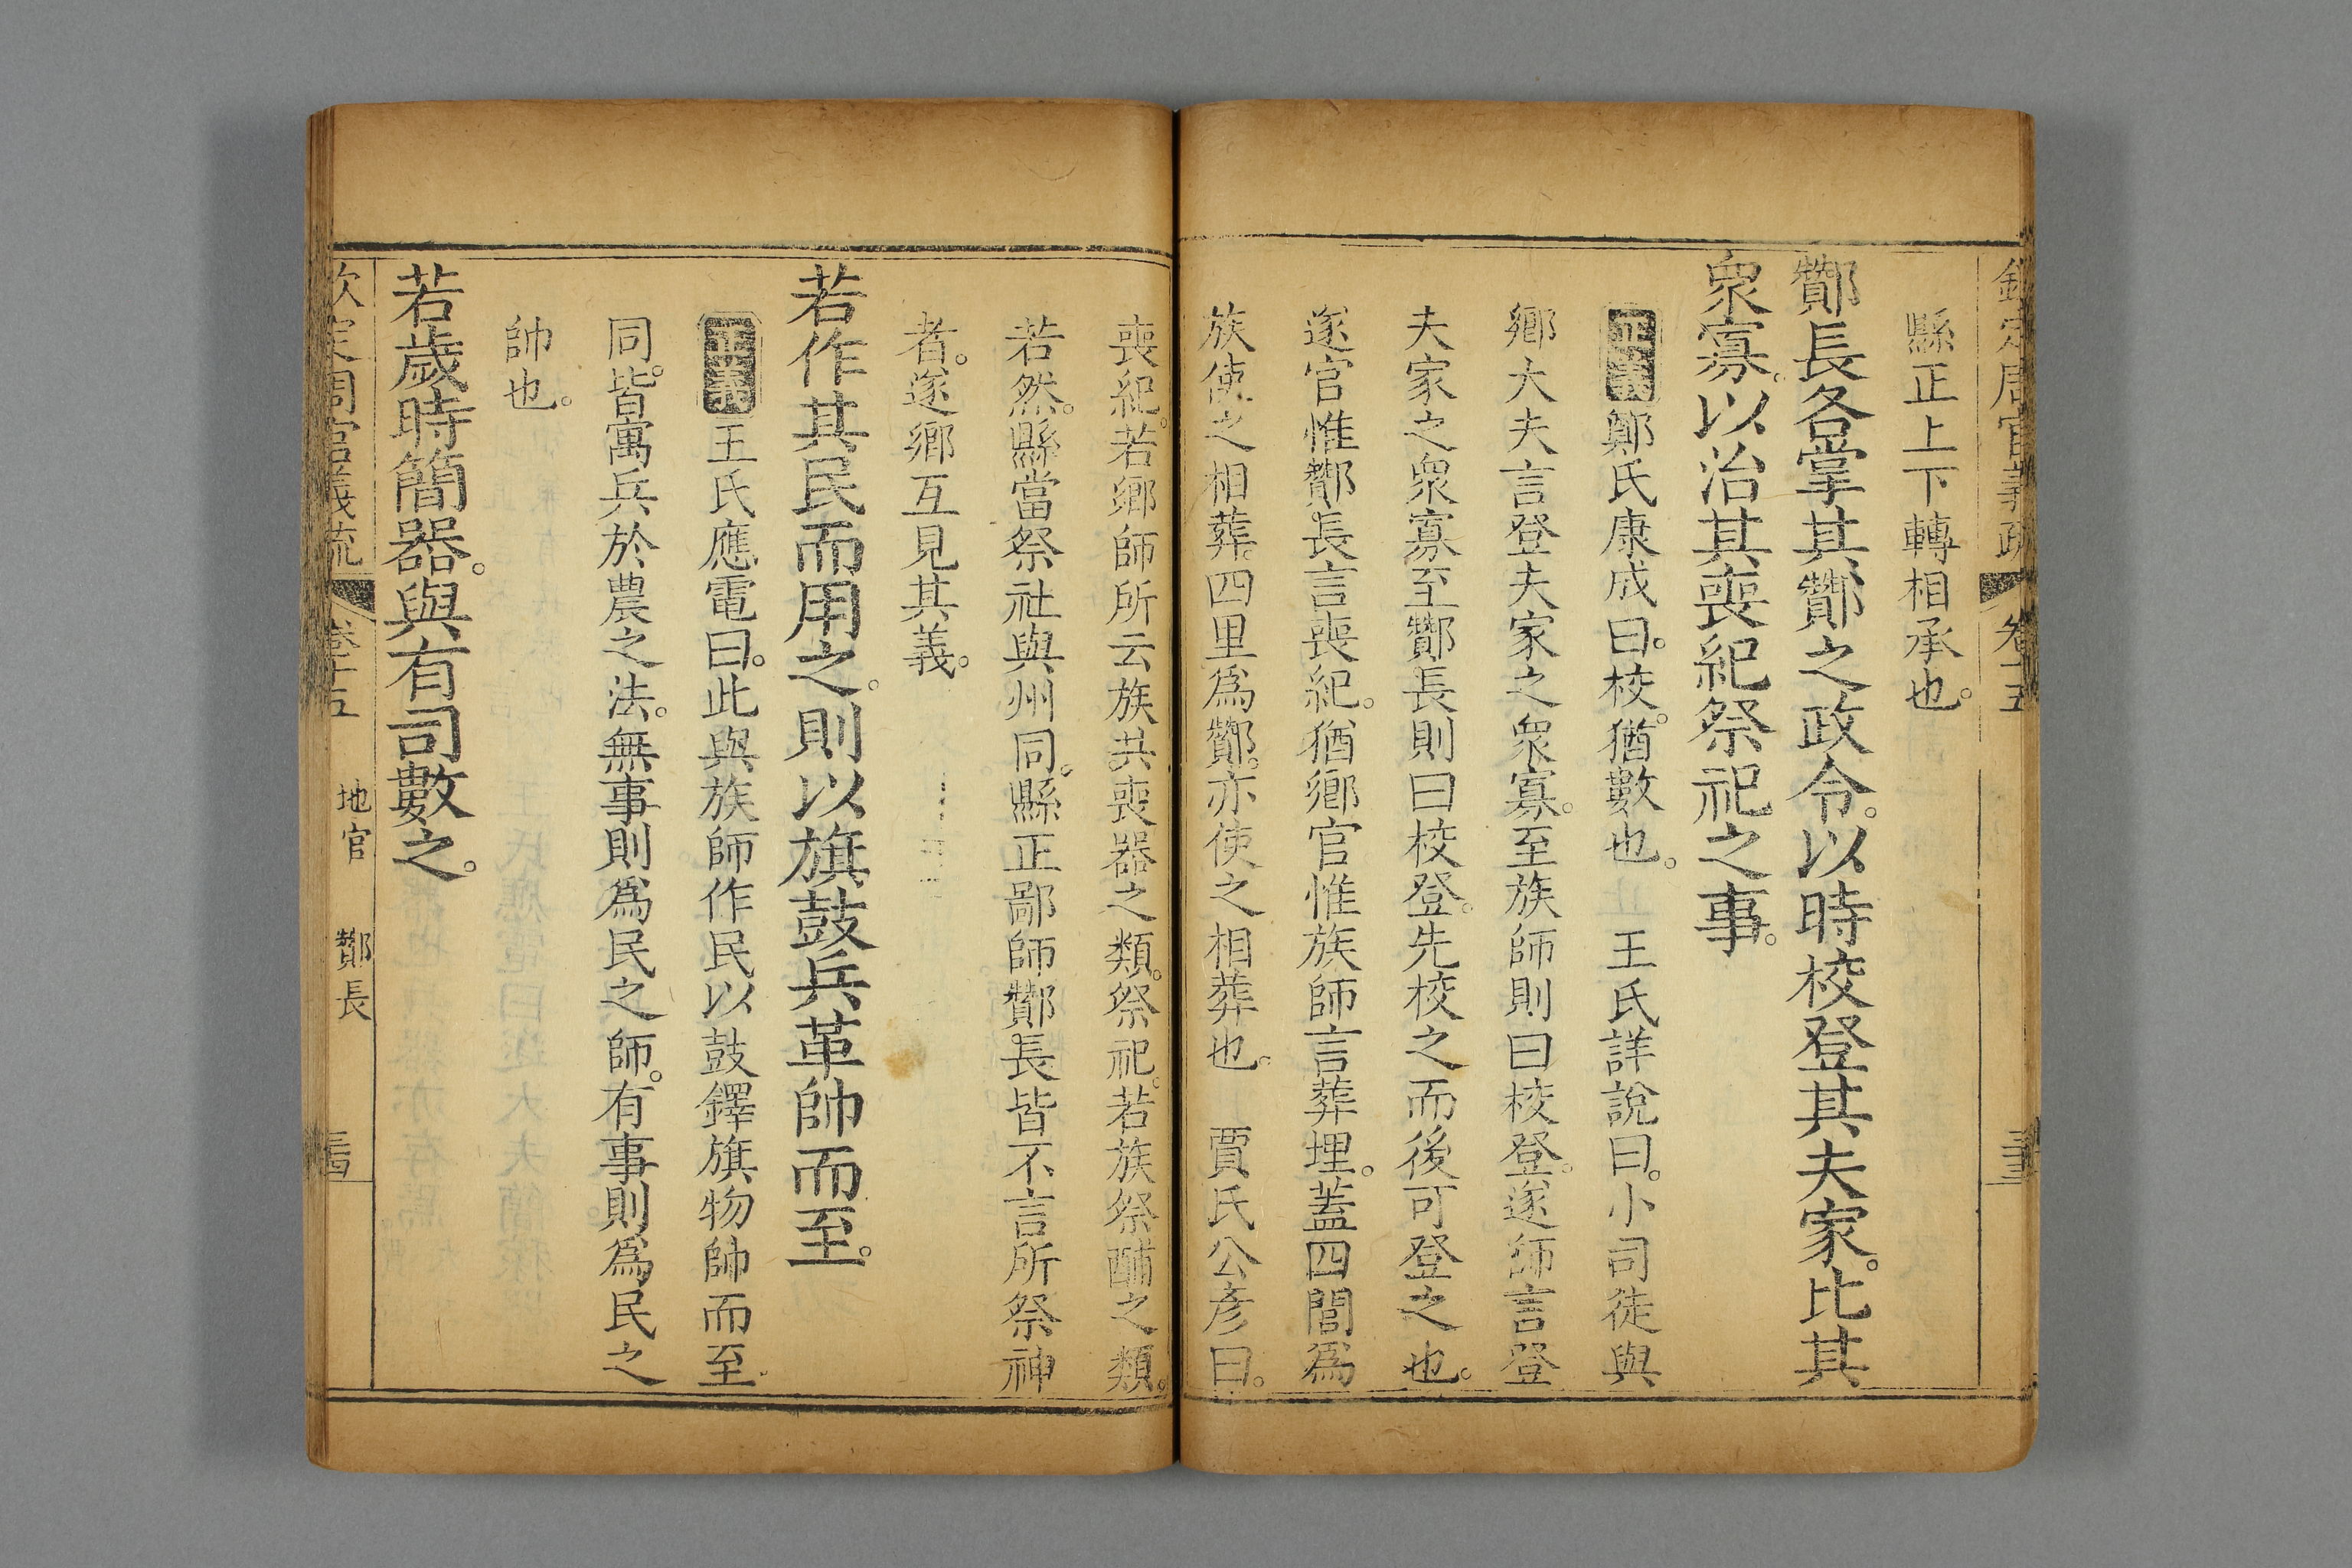 欽定周官義疏 卷十五 三三
縣正上下轉相承也。
酇長各掌其酇之政令。以時校登其夫家。比其
衆寡。以治其喪紀祭祀之事。
正義鄭氏康成曰。校。猶數也。 王氏詳說曰。小司徒與
鄉大夫言登夫家之衆寡。至族師則曰校登。遂師言登
夫家之衆寡至酇長則曰校登。先校之而後可登之也。
遂官惟酇長言喪紀。猶鄉官惟族師言葬埋。蓋四閭爲
族使之相葬。四里爲酇。亦使之相葬也。 賈氏公彥曰。
喪紀。若鄉師所云族共喪器之類。祭祀。若族祭酺之類。
若然。縣當祭社與州同。縣正鄙師酇長皆不言所祭神
者。遂鄉互見其義。
若作其民而用之。則以旗鼓兵革帥而至。
正義王氏應電曰。此與族師作民以鼓鐸旗物帥而至
同。皆寓兵於農之法。無事則爲民之師。有事則爲民之
帥也。
若歲時簡器。與有司數之。
欽定周官義疏 卷十五 地官 酇長 三四